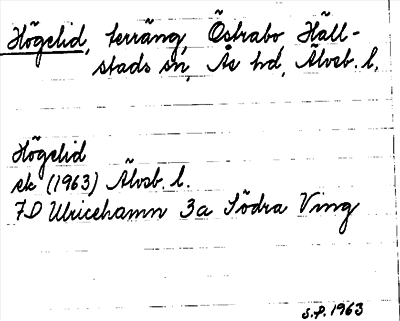 Högelid, terräng, Östrabo, Häll-
stads sn, Ås hd, Älvsb. l.
Högelid
ek (1963) Älvsb. l.
7D Ulricehamn 3a Södra Ving
s.f. 1963